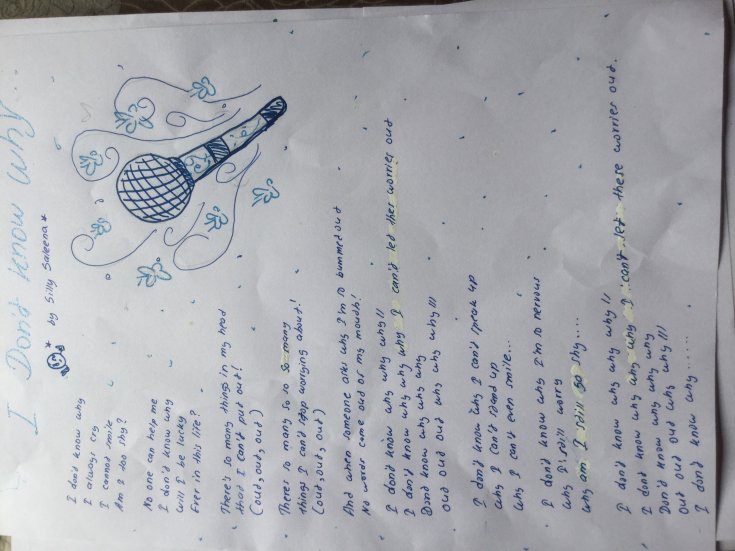 I Don't know why...
* by Silly Saleena *
I don't know why
I always cry
I cannot smile
Am I too shy?
No one can help me
I don't know why
will I be lucky
Ever in this life?
There's so many things in my head
that I can't put out!
(out, out, out)
Theres so many so so so many
things I can't stop worrying about!
(out, out, out)
And when someone asks why I'm so bummed out
No words come out of my mouth!
I don't know why why why!!
I don't know why why why why I can't let these worries out
Don't know why why why
out out out why why why!!!
I don't know why I can't speak up
why I can't stand up
why I can't even smile...
I don't know why I'm so nervous
why I still worry
why am I still so shy....
I don't know why why why!!
I dont know why why why I can't let these worries out.
Don't know why why why
out out out why why why!!!
I don't know why ......